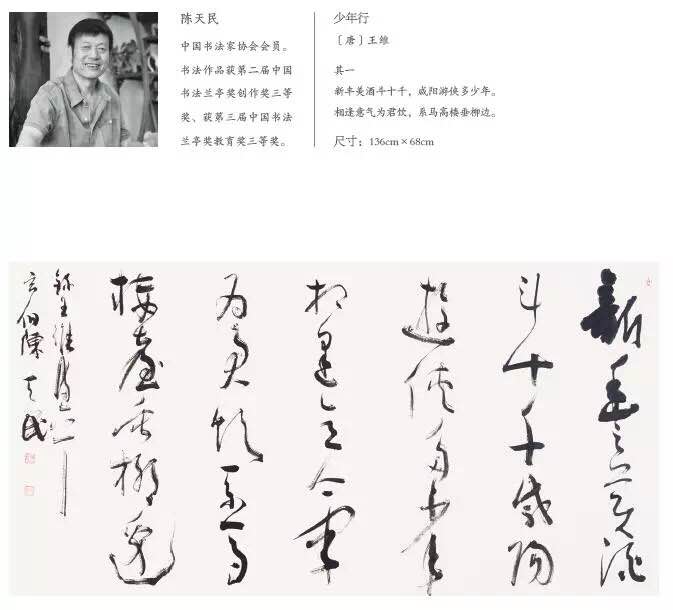 陈天民
中国书法家协会会员。
书法作品获第二届中国
书法兰亭奖创作奖三等
奖、获第三届中国书法
兰亭奖教育奖三等奖。
少年行
〔唐〕王维
其一
新丰美酒斗十千，咸阳游侠多少年。
相逢意气为君饮，系马高楼垂柳边。
尺寸：136cm×68cm
新丰美酒
斗十千咸陽
遊俠多少年
相逢意气
为君饮系马
垂柳邊
王維
陳天民